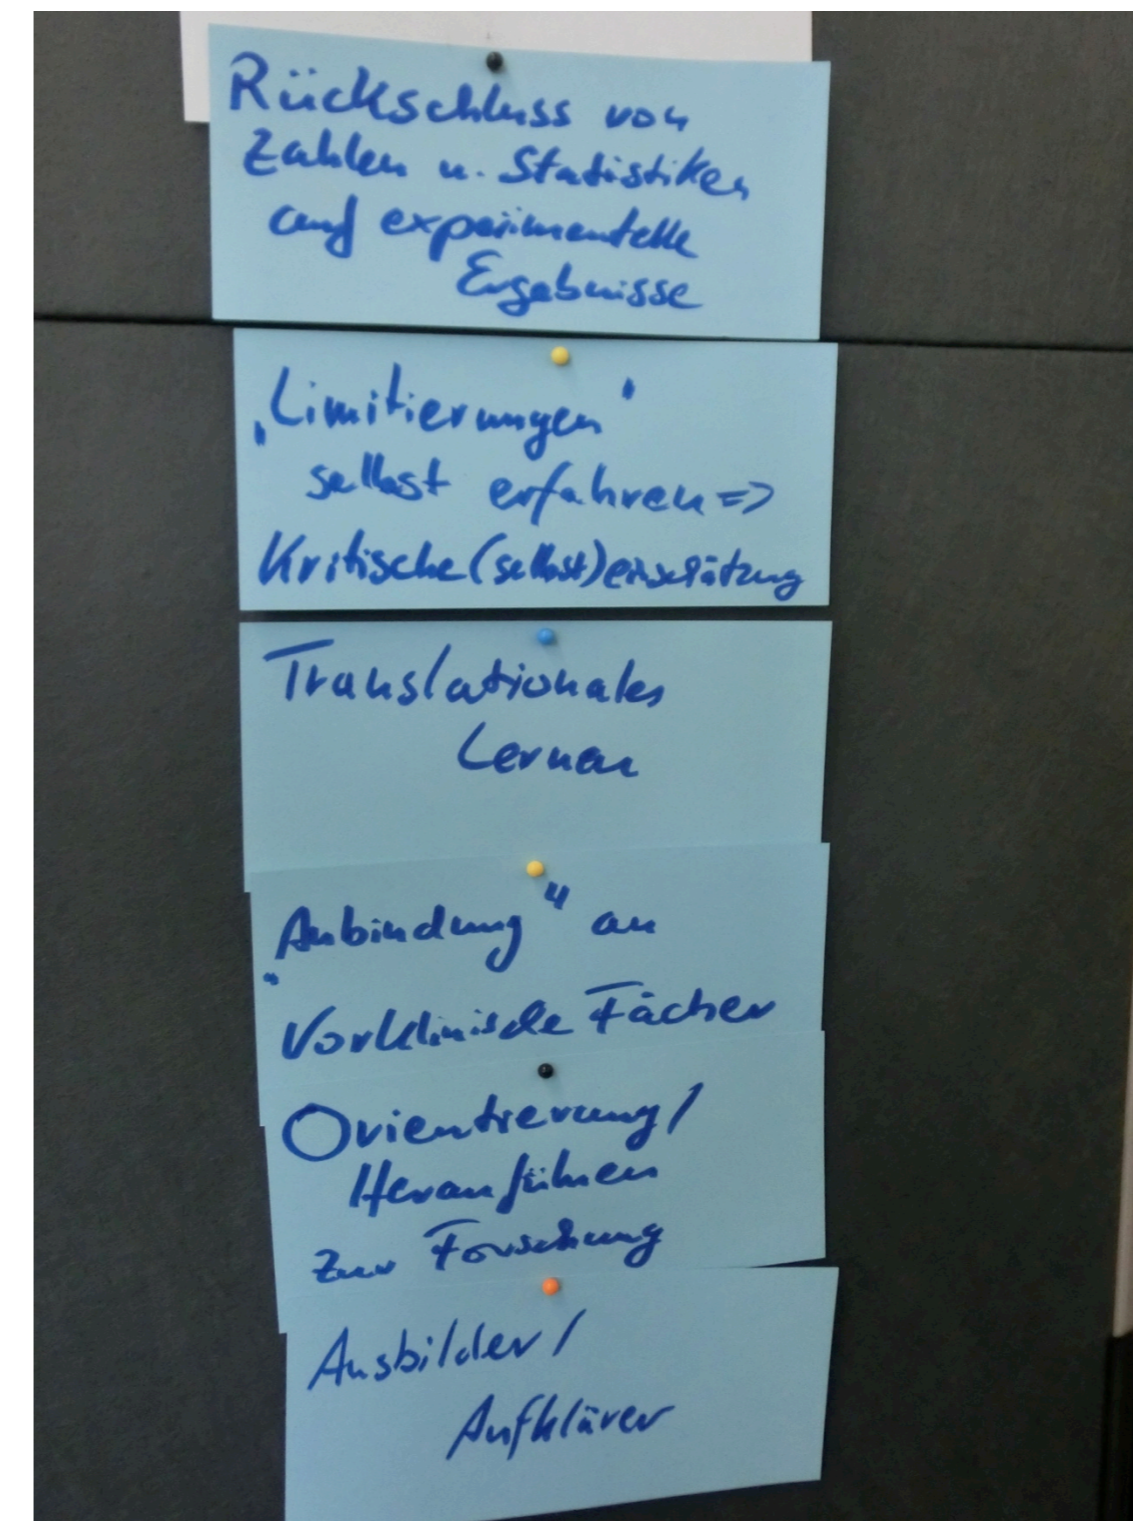 Rückschluss von
Zahlen u. Statistiken
auf experimentelle
Ergebnisse
„Limitierungen"
selbst erfahren =>
Kritische (selbst) einschätzung
Translationales
Lernen
„Anbindung" an
Vorklinische Fächer
Orientierung /
Heranführen
zur Forschung
Ausbilder /
Aufklärer